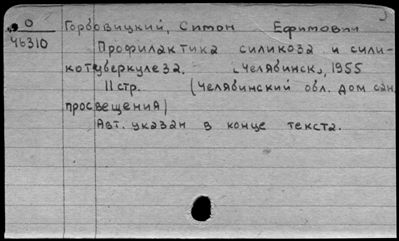 0 Горбовицкий, Симон Ефимович
46310
Профилактика силикоза и сили-
котуберкулеза. [Челябинск], 1955
11 стр. (Челябинский обл. дом сан.
просвещения)
Авт. указан в конце текста.